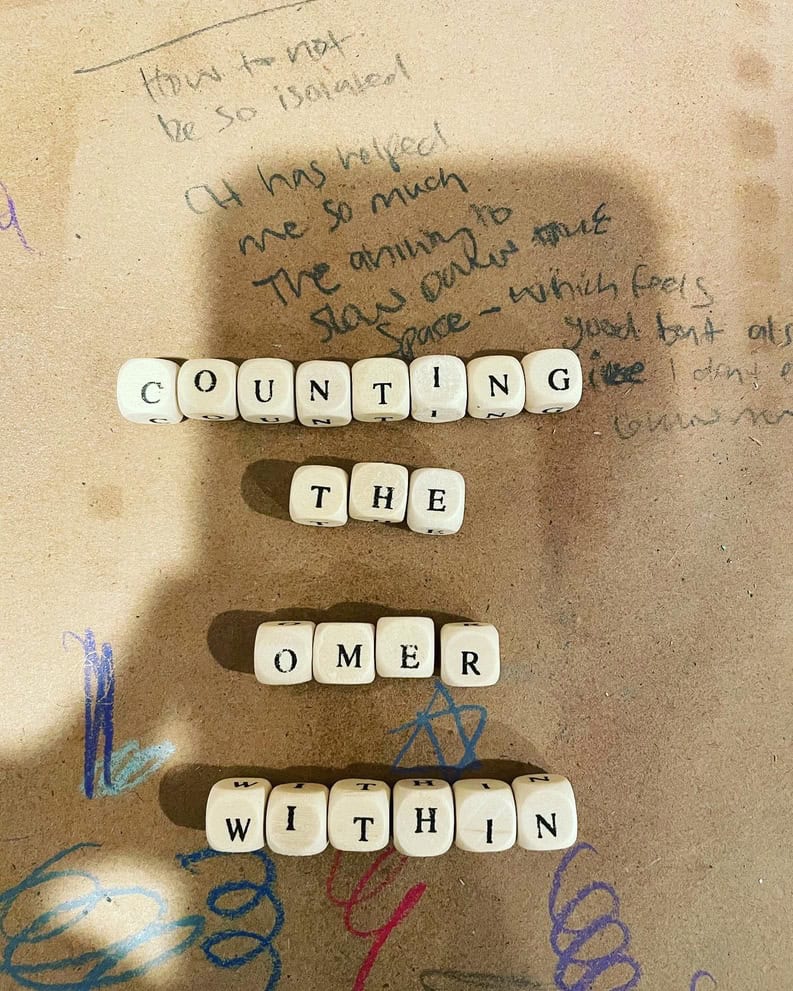 How to not
be so isolated
has helped
me so much
The ability to
slow down
Space - which feels
good but als
like I don't
COUNTING
THE
OMER
WITHIN